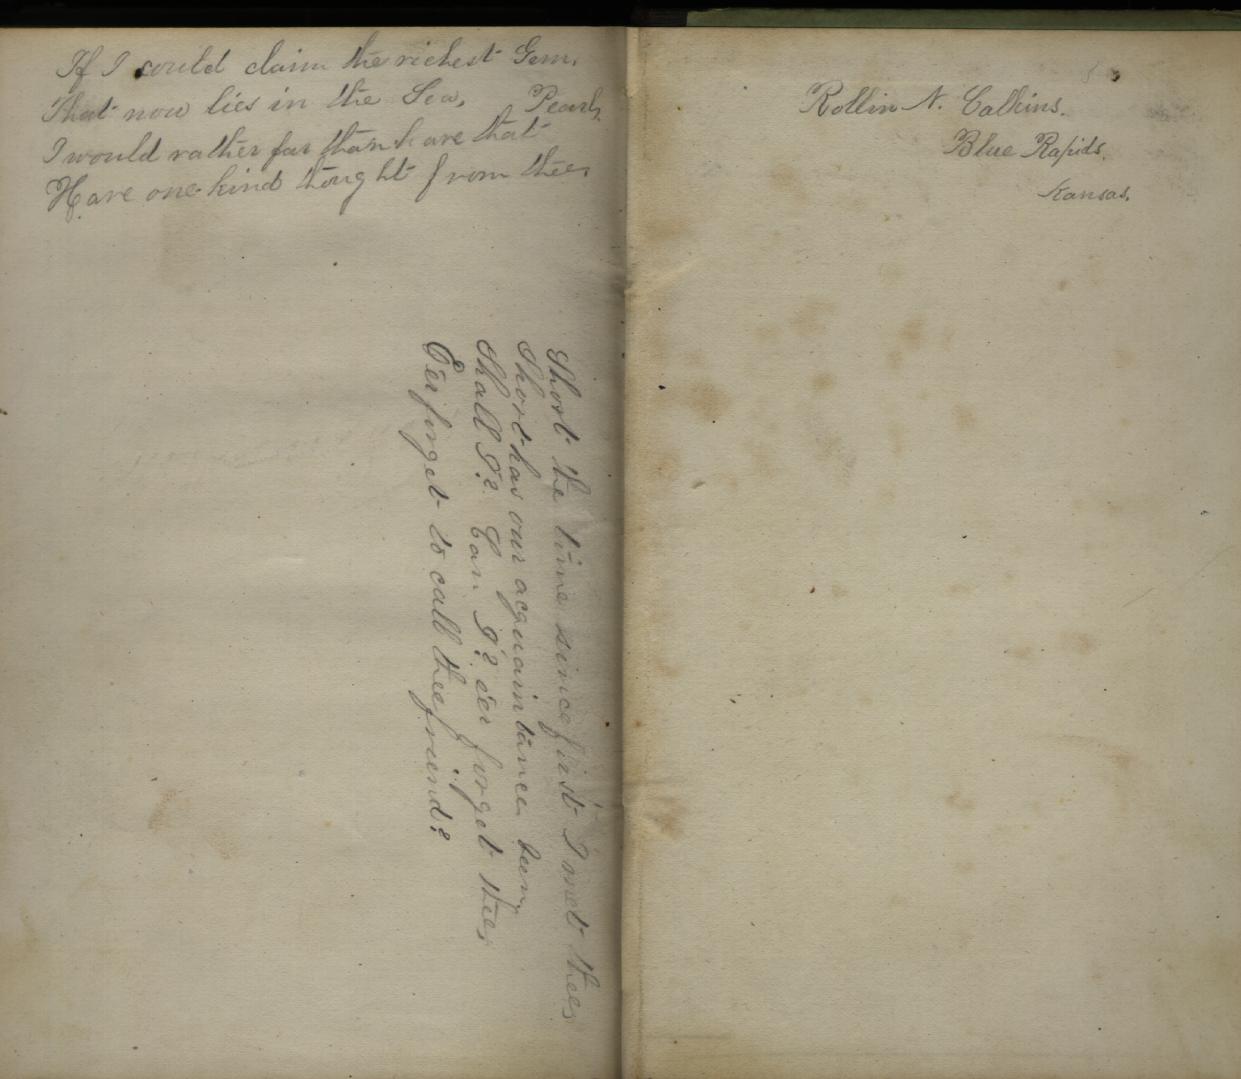 If I could claim the richest Gem,
That now lies in the Sea,
Pearl,
I would rather far than have that
Have one kind thought from thee,
Short the time since first I met thee,
Short has our acquaintance been,
Shall I? Can I? e'er forget thee,
E'er forget to call thee friend?
Rollin N. Calkins.
Blue Rapids,
Kansas.